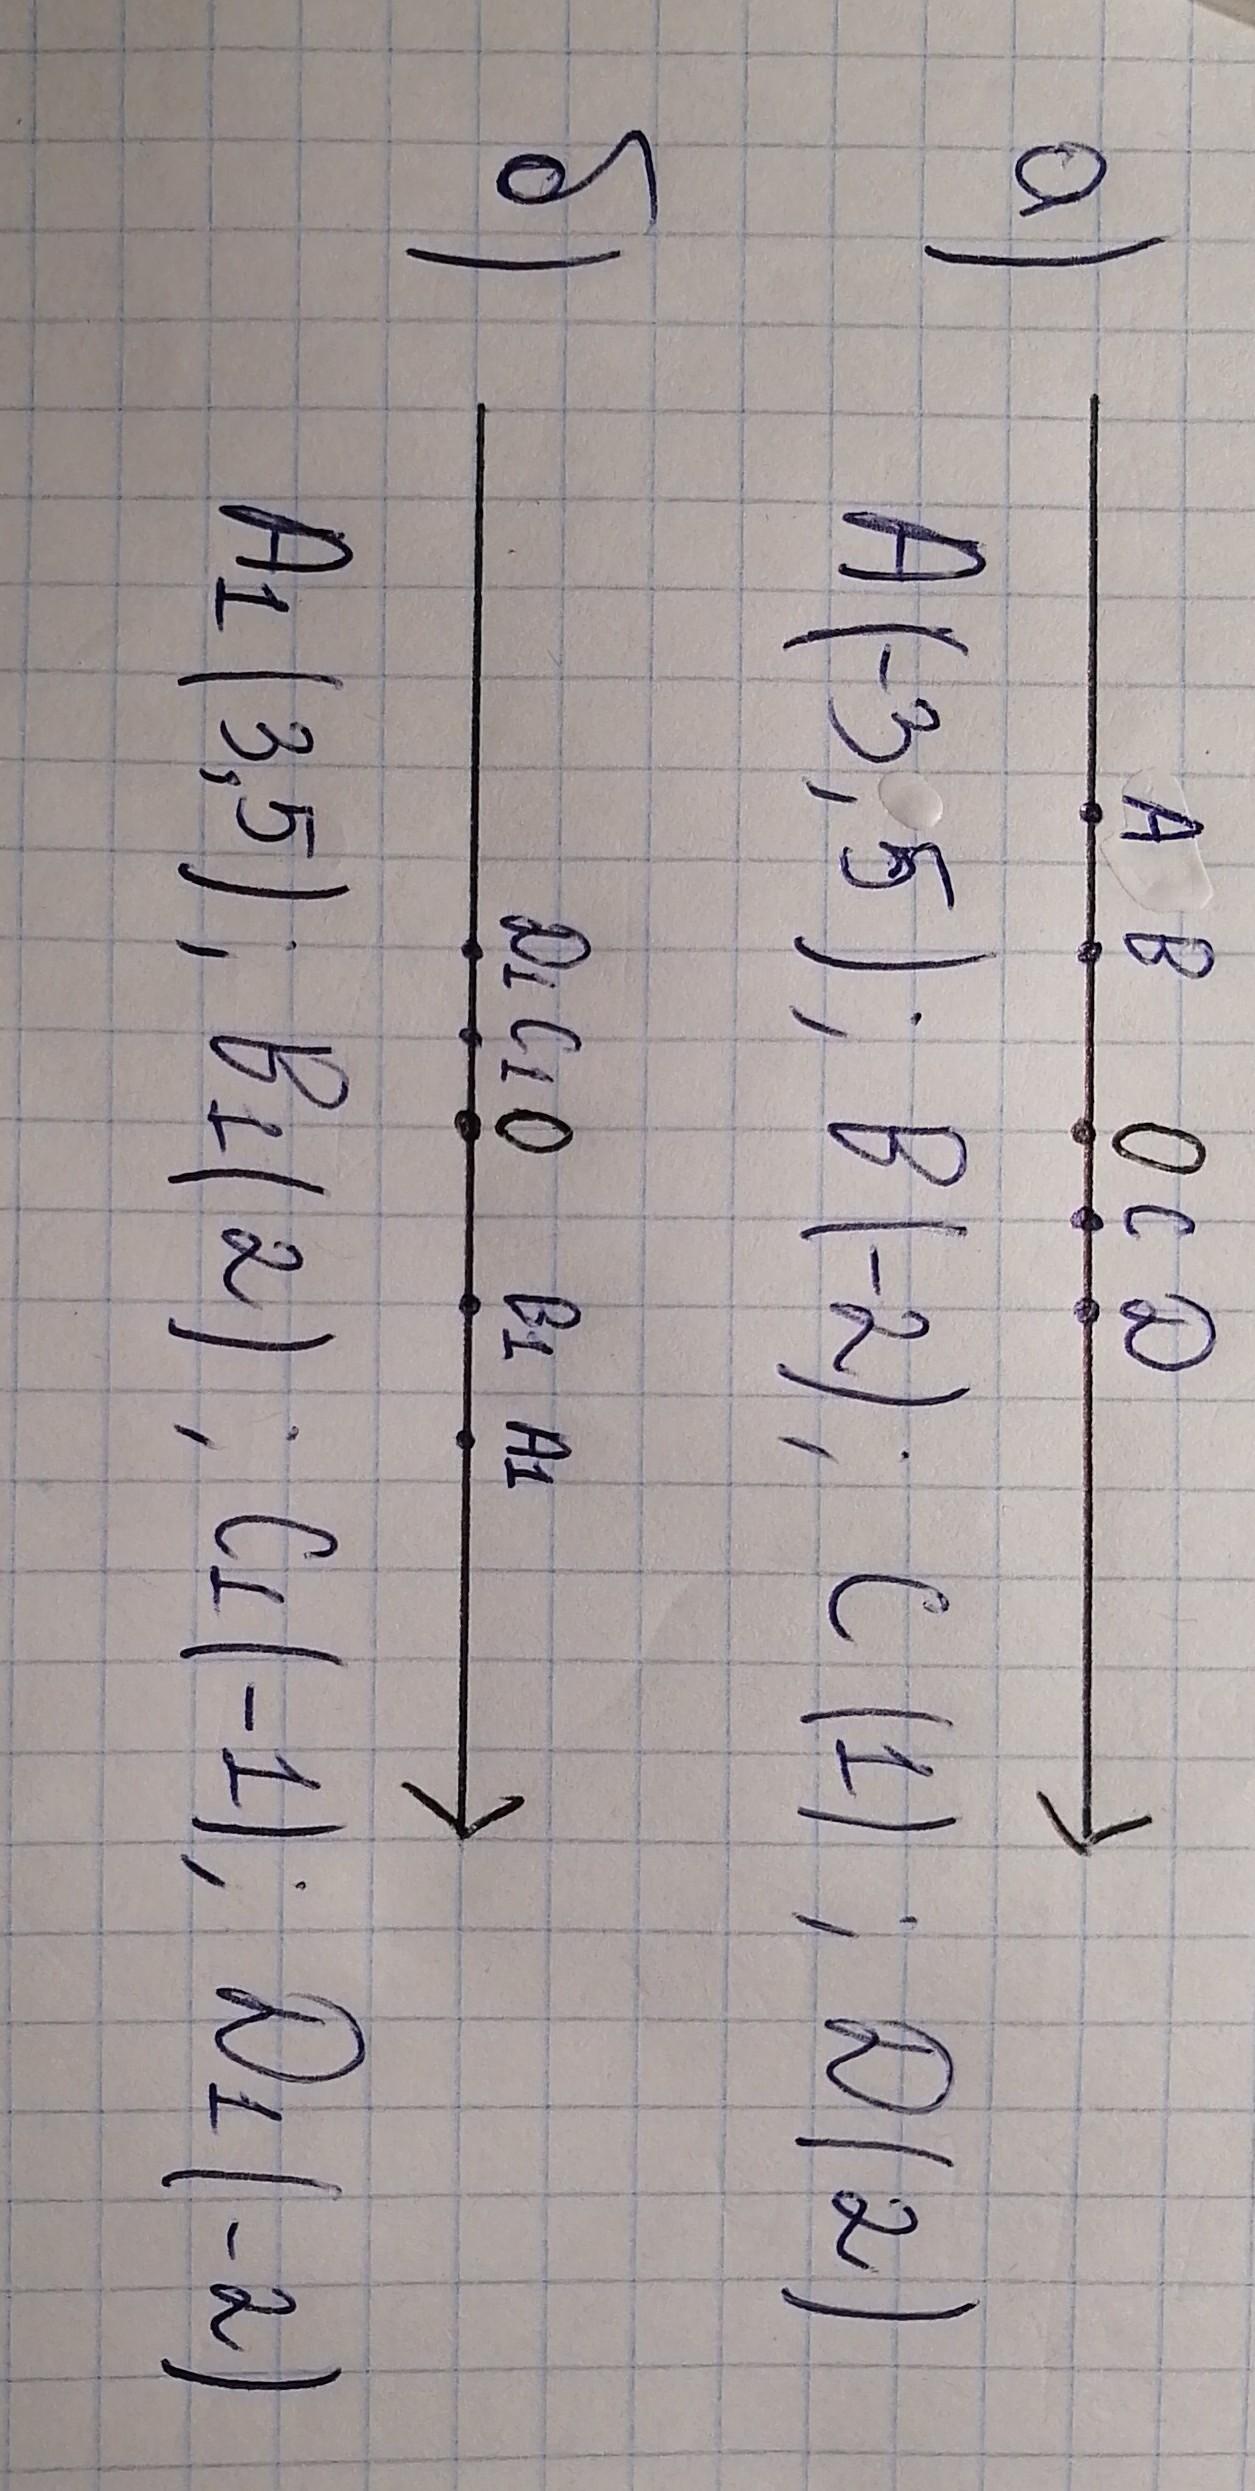 а)
A B O C D
A(-3,5); B(-2); C(1); D(2)
б)
D1 C1 O B1 A1
A1(3,5); B1(2); C1(-1); D1(-2)